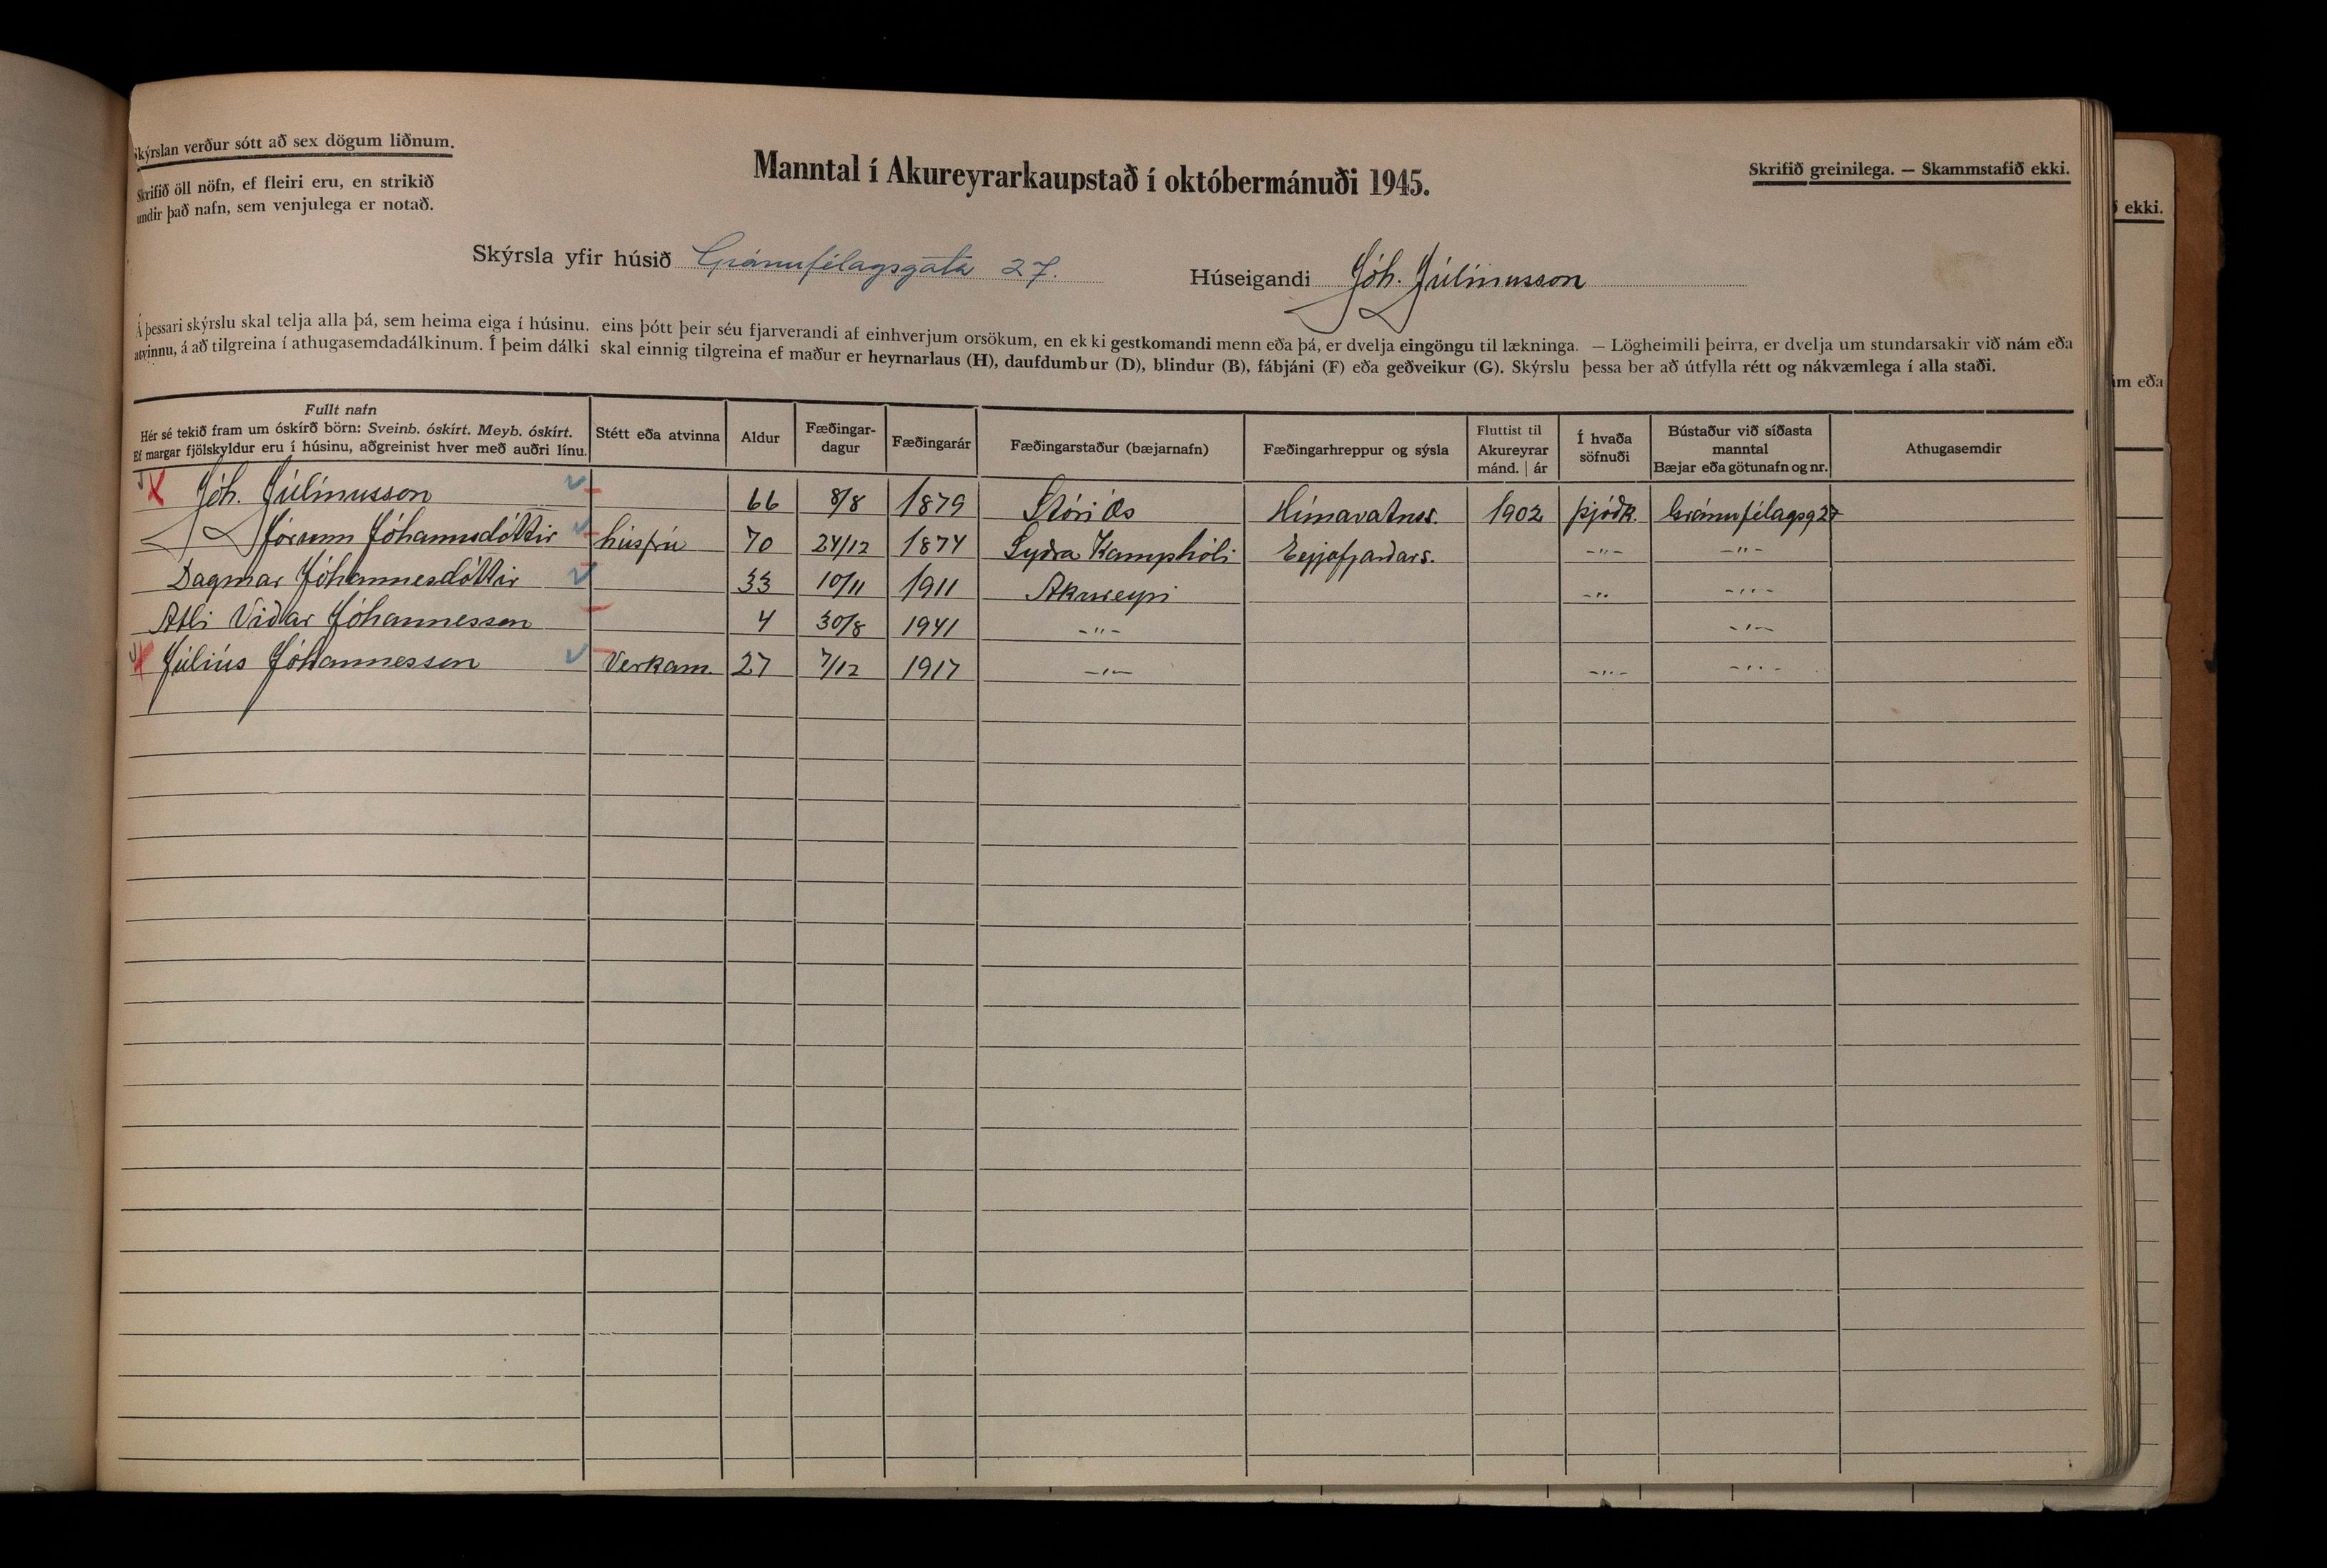 Skýrslan verður sótt að sex dögum liðnum.
Skrifið öll nöfn, ef fleiri eru, en strikið
undir það nafn, sem venjulega er notað.
Manntal í Akureyrarkaupstað í októbermánuði 1945.
Skrifið greinilega. — Skammstafið ekki.
ð ekki.
Skýrsla yfir húsið Gránufélagsgata 27.
Húseigandi Jóh. Júlínusson
Á þessari skýrslu skal telja alla þá, sem heima eiga í húsinu, eins þótt þeir séu fjarverandi af einhverjum orsökum, en ekki gestkomandi menn eða þá, er dvelja eingöngu til lækninga. — Lögheimili þeirra, er dvelja um stundarsakir við nám eða
atvinnu, á að tilgreina í athugasemdadálkinum. Í þeim dálki skal einnig tilgreina ef maður er heyrnarlaus (H), daufdumbur (D), blindur (B), fábjáni (F) eða geðveikur (G). Skýrslu þessa ber að útfylla rétt og nákvæmlega í alla staði.
ám eða
Fullt nafn
Hér sé tekið fram um óskírð börn: Sveinb. óskírt. Meyb. óskírt.
Ef margar fjölskyldur eru í húsinu, aðgreinist hver með auðri línu.
Stétt eða atvinna
Aldur
Fæðingar-
dagur
Fæðingarár
Fæðingarstaður (bæjarnafn)
Fæðingarhreppur og sýsla
Fluttist til
Akureyrar
mánd. | ár
Í hvaða
söfnuði
Bústaður við síðasta
manntal
Bæjar eða götunafn og nr.
Athugasemdir
Jóh. Júlínusson 66 8/8 1879 Stóri Ós Húnavatnss. 1902 Þjóðk. Gránufélagsg 27
Jórunn Jóhannsdóttir húsfrú 70 24/12 1874 Syðra Kamphóli Eyjafjarðars. -"- -"-
Dagmar Jóhannesdóttir 33 10/11 1911 Akureyri -"- -"-
Atli Viðar Jóhannesson 4 30/8 1941 -"- -"-
Júlíus Jóhannesson Verkam. 27 7/12 1917 -"- -"- -"-